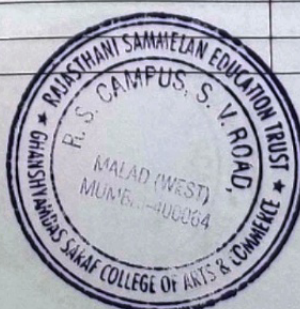 ★ RAJASTHANI SAMMELAN EDUCATION TRUST ★
GHANSHYAMDAS SARAF COLLEGE OF ARTS & COMMERCE
R. S. CAMPUS, S. V. ROAD,
MALAD (WEST)
-400064